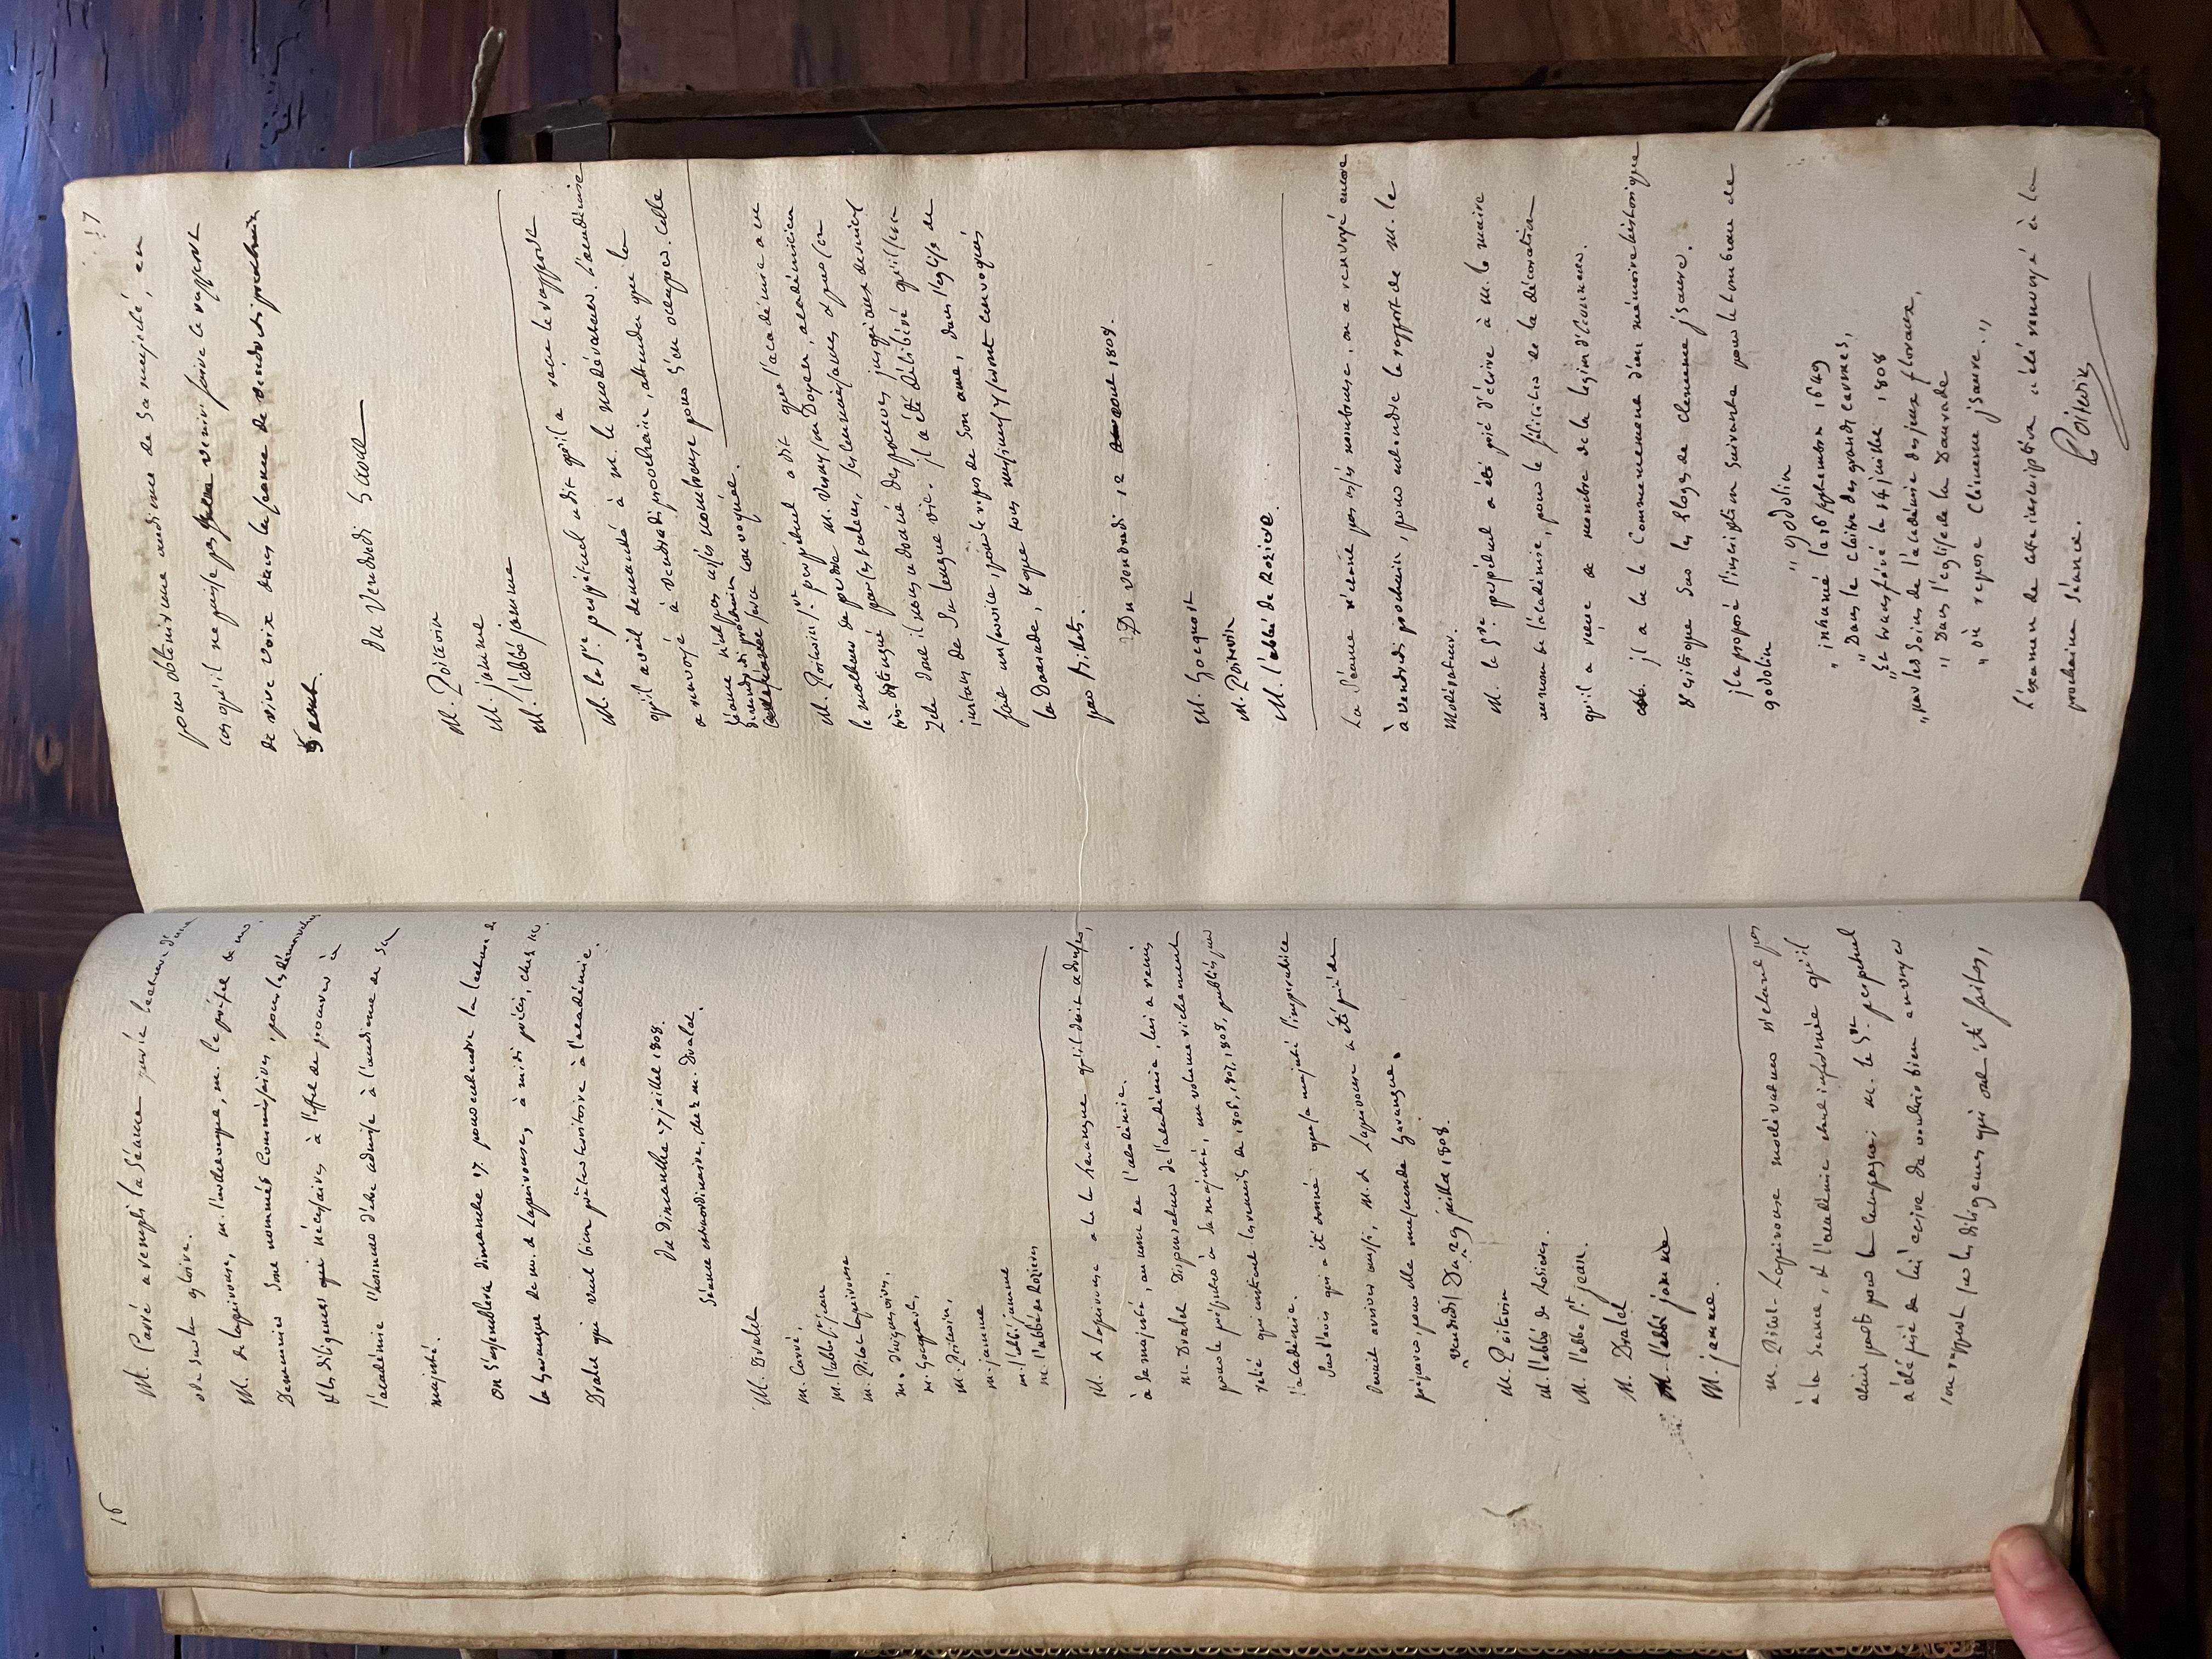 16
M. Carré a rempli la Séance par la lecture d'une
ode sur la gloire.
M. de Lapeirouse, m. l'archevêque, m. le préfet & m.
Desmousseaux sont nommés Commissaires, pour les démarches
& les diligences qui nécessaires à l'effet de procurer à
l'académie l'honneur d'être admise à l'audience de Sa
majesté.
on s'assemblera dimanche 17 pour entendre la lecture de
la harangue de m. de Lapeirouse, à midi précis, chez m.
Dralet qui veut bien prêter territoire à l'académie.
Du dimanche 17 juillet 1808.
Séance extraordinaire, chez m. Dralet.
M. Dralet
m. Carré,
m. l'abbé St jean
m. Picot Lapeirouse
m. d'aiguesvives,
m. Gocquart,
m. Poitevin,
m. jamme
m. l'abbé jamme
m. l'abbé de Rozieres
M. de Lapeirouse a lu la harangue qu'il doit adresser,
à Sa majesté, au nom de l'académie.
M. Dralet Dispensateur de l'académie, lui a remis
pour le présenter à Sa majesté, un volume richement
relié qui contient les recueils de 1806, 1807, 1808, publiés par
l'académie.
Sur l'avis qui a été donné que sa majesté l'impératrice
devait arriver aussi, M. de Lapeirouse a été prié de
préparer pour elle une seconde harangue.
Vendredi Du 29 juillet 1808.
M. Poitevin
M. l'abbé de Rosieres.
M. l'abbé St jean.
M. Dralet
M. l'abbé jamme
M. jamme.
M. Picot-Lapeirouse modérateur n'étant pas
à la Séance, & l'académie étant informée qu'il
était parti pour la campagne; M. le Sre perpétuel
a été prié de lui écrire de vouloir bien envoyer
son rapport sur les diligences qui ont été faites,
17
pour obtenir une audience de Sa majesté, en
cas qu'il ne puisse pas venir faire le rapport
de vive voix dans la séance de vendredi prochain
5 aout.
du Vendredi 5 aout
M. Poitevin
M. jamme
M. l'abbé jamme
M. le Sre perpétuel a dit qu'il a reçu le rapport
qu'il avait demandé à m. le modérateur. L'académie
a renvoyé à vendredi prochain, attendu que la
Séance n'est pas assés nombreuse pour S'en occuper. Celle
de vendredi prochain sera convoquée.
M. Poitevin Sre perpétuel a dit que l'académie a eu
le malheur de perdre M. Verny son Doyen, académicien
très-distingué par ses talens, ses connaissances & par son
Zèle dont il nous a donné des preuves jusqu'aux derniers
instans de Sa longue vie. il a été délibéré qu'il sera
fait un service, pour le repos de Son ame, dans l'église de
la Daurade, & que tous messieurs y seront convoqués
par billets.
Du Vendredi 12 aout 1808.
M. Gocquart
M. Poitevin
M. l'abbé de Roziere.
La Séance n'étant pas assés nombreuse, on a renvoyé encore
à vendredi prochain, pour entendre le rapport de M. le
Modérateur.
M. le Sre perpétuel a été prié d'écrire à M. le maire
au nom de l'académie, pour le féliciter de la décoration
qu'il a reçue de membre de la legion d'honneur.
il a lu le Commencement d'un mémoire historique
& critique sur les éloges de Clemence jsaure.
il a proposé l'inscription Suivante pour le tombeau de
godolin
" godolin
" inhumé le 16 septembre 1649
" Dans le cloître des grands carmes,
" Et transféré le 14 juillet 1808
" par les Soins de l'académie des jeux floraux,
" Dans l'église de la Daurade
" où repose Clémence jsaure. "
L'examen de cette inscription a été renvoyé à la
prochaine Séance.
Poitevin